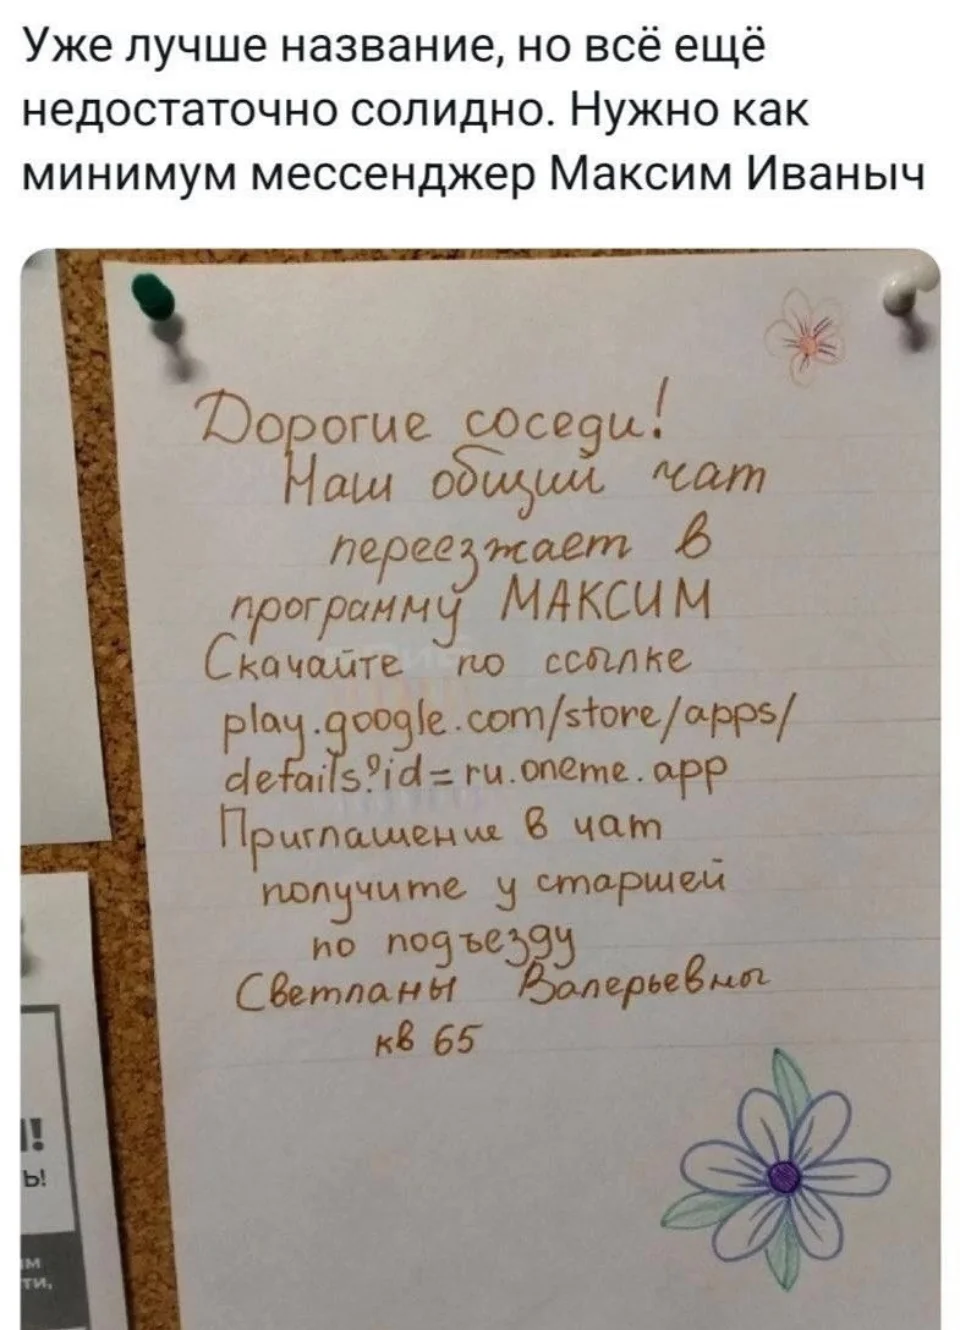 Уже лучше название, но всё ещё
недостаточно солидно. Нужно как
минимум мессенджер Максим Иваныч
Дорогие соседи!
Наш общий чат
переезжает в
программу МАКСИМ
Скачайте по ссылке
play.google.com/store/apps/
details?id=ru.oneme.app
Приглашение в чат
получите у старшей
по подъезду
Светланы Валерьевны
кв 65
!
Ь!